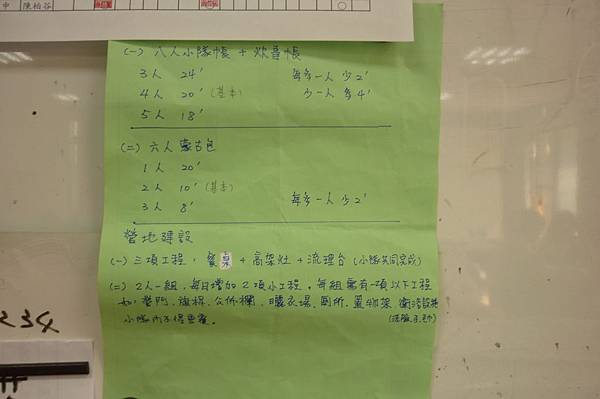 中 陳柏谷
(一) 八人小隊帳 + 炊事帳
3人 24' 每多一人 少2'
4人 20' (基本) 少一人 多4'
5人 18'
(二) 六人蒙古包
1人 20'
2人 10' (基本)
3人 8' 每多一人 少2'
營地建設
(一) 三項工程: 餐桌 + 高架灶 + 流理台 (小隊共同完成)
(二) 2人一組, 每日增加2項小工程。每組需有一項以下工程
如: 營門、旗桿、公佈欄、曬衣場、廁所、置物架、衛浴設施
小隊內不得重覆。
234